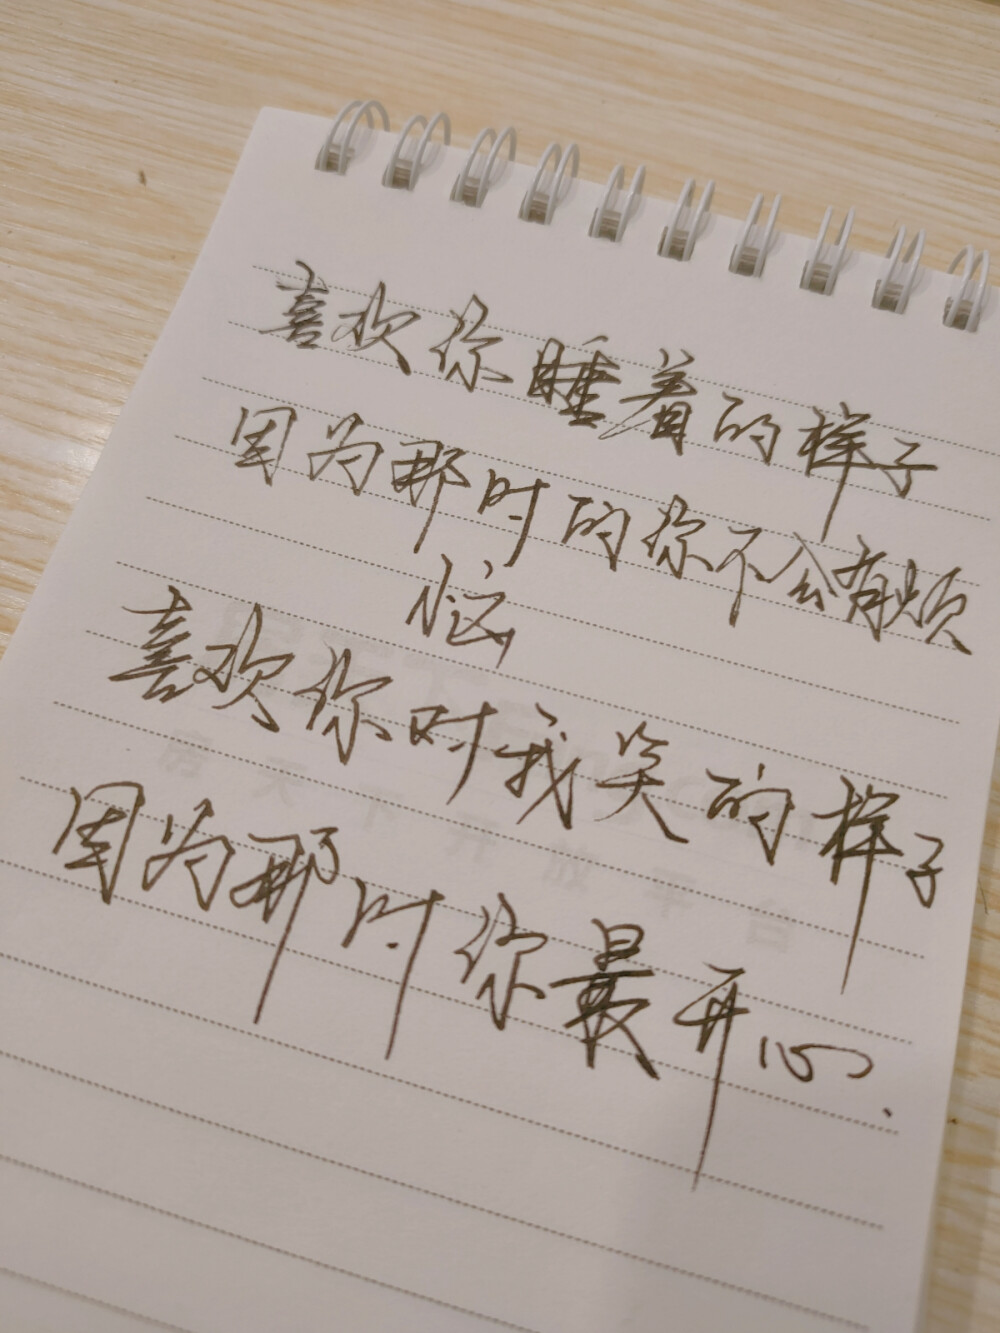 喜欢你睡着的样子
因为那时的你不会有烦
恼
喜欢你对我笑的样子
因为那时你最开心.